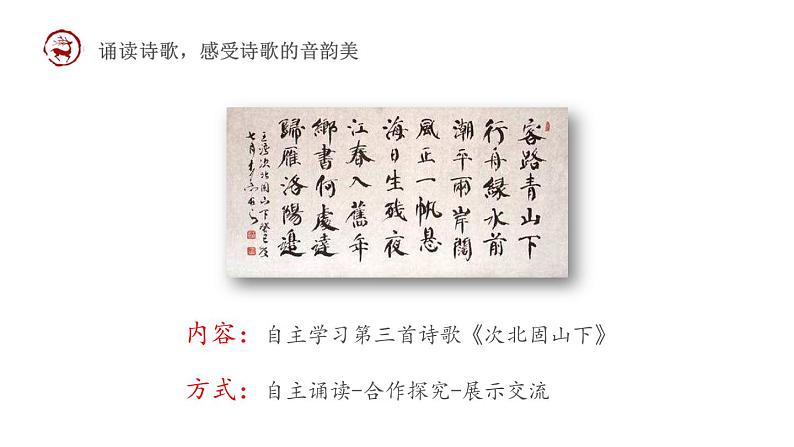 诵读诗歌，感受诗歌的音韵美
客路青山下
行舟緑水前
潮平兩岸闊
風正一帆懸
海日生残夜
江春入舊年
鄉書何處達
歸雁洛陽邊
王湾次北固山下癸巳
七月
内容：自主学习第三首诗歌《次北固山下》
方式：自主诵读-合作探究-展示交流